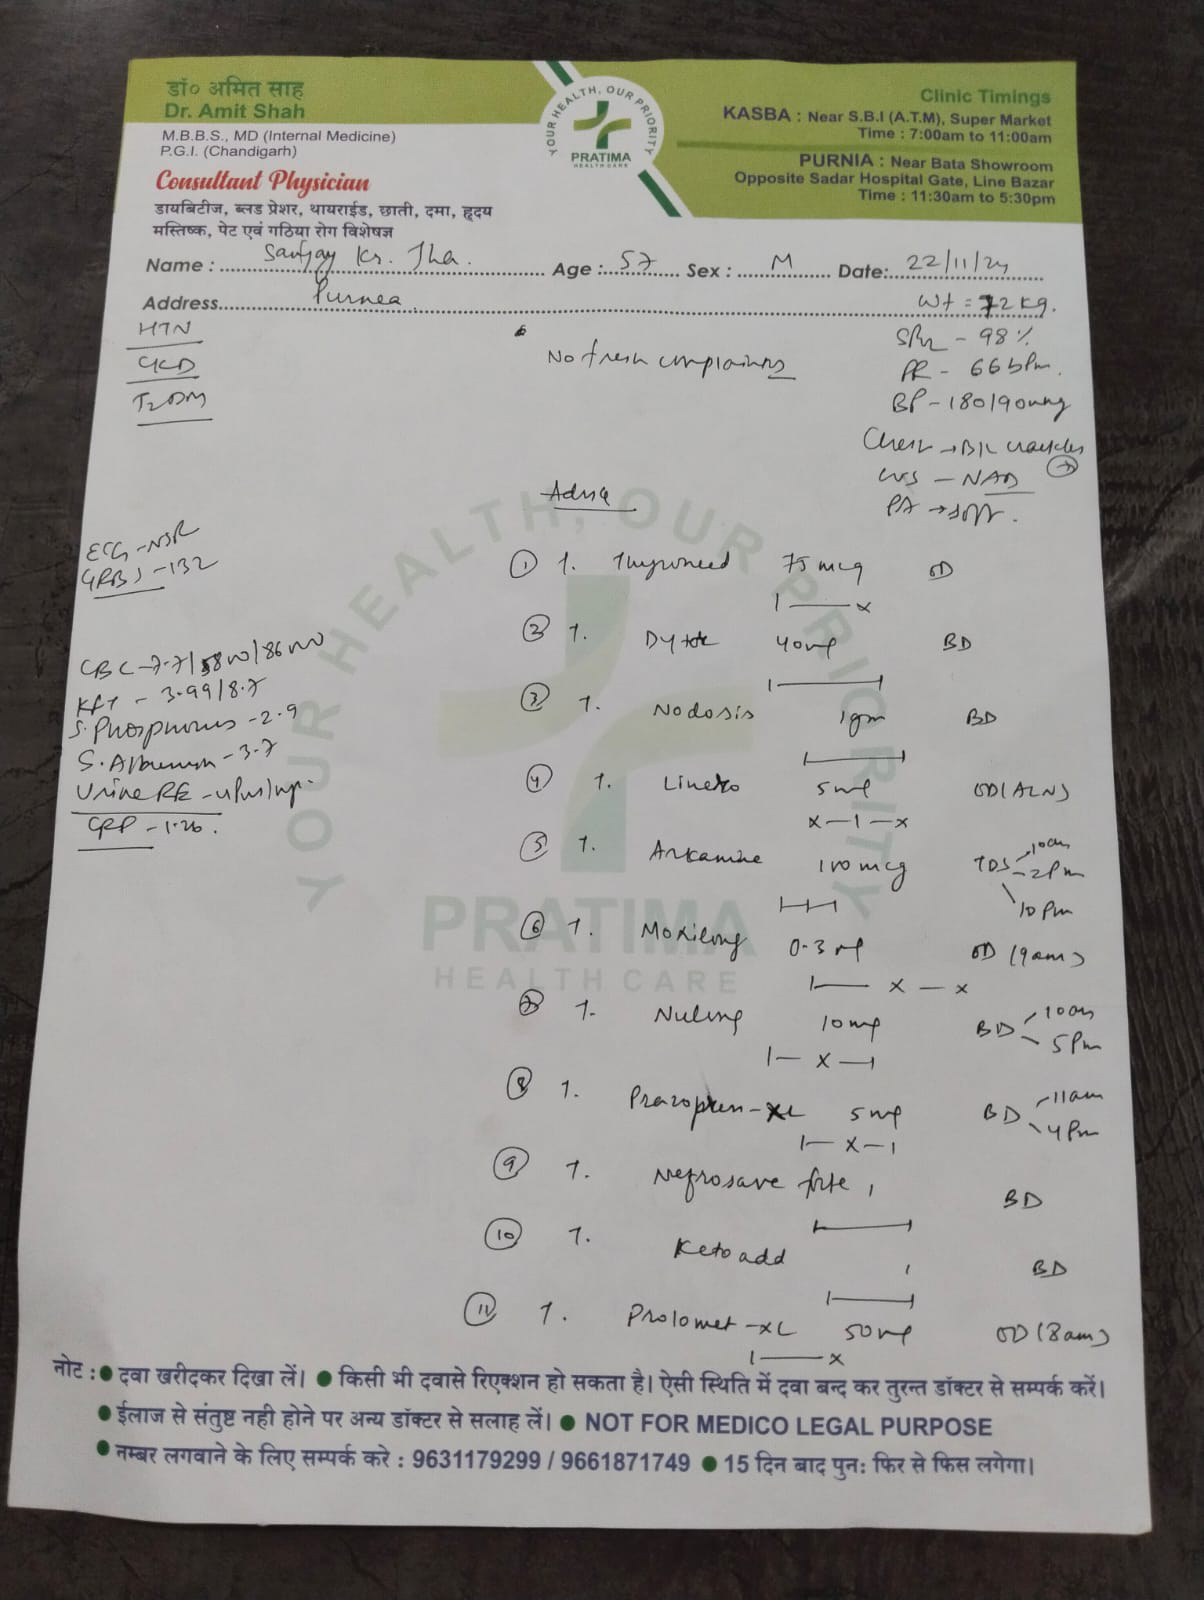 डॉ० अमित साह
Dr. Amit Shah
M.B.B.S., MD (Internal Medicine)
P.G.I. (Chandigarh)
Consultant Physician
डायबिटीज, ब्लड प्रेशर, थायराईड, छाती, दमा, हृदय
मस्तिष्क, पेट एवं गठिया रोग विशेषज्ञ
YOUR HEALTH, OUR PRIORITY
PRATIMA
HEALTH CARE
Clinic Timings
KASBA : Near S.B.I (A.T.M), Super Market
Time : 7:00am to 11:00am
PURNIA : Near Bata Showroom
Opposite Sadar Hospital Gate, Line Bazar
Time : 11:30am to 5:30pm
Name : Sanjay Kr. Jha. Age : 57 Sex : M Date: 22/11/24
Address Purnea
Wt = 72 kg.
HTN
CKD
T2DM
No fresh complaints
SPO2 - 98 %
PR - 66 bpm.
BP - 180/90 mmHg
Chest → B/L crackles
(+)
CVS - NAD
PA → soft.
Advice
ECG - NSR
GRBS - 132
CBC - 7.7/5800/86000
KFT - 3.99/8.7
S. Phosphorus - 2.9
S. Albumin - 3.7
Urine RE -
CRP - 1.26.
① T. Thyroneed 75 mcg OD
I — x
② T. Dytor 40mg BD
I — I
③ T. Nodosis 1gm BD
I — I
④ T. 5mg OD (ALN)
x — I — x
⑤ T. Arkamine 100 mcg TDS 10am
2pm
10 pm
I-I-I
⑥ T. Moxilong 0.3 mg OD (9am)
I — x — x
⑦ T. Nulong 10mg BD 10am
5pm
I — x — I
⑧ T. Prazopress-XL 5mg BD 11am
4pm
I — x — I
⑨ T. Nefrosave forte 1 BD
I — I
⑩ T. Ketoadd 1 BD
I — I
⑪ T. Prolomet-XL 50mg OD (8am)
I — x
YOUR HEALTH, OUR PRIORITY
PRATIMA
HEALTH CARE
नोट : ● दवा खरीदकर दिखा लें। ● किसी भी दवासे रिएक्शन हो सकता है। ऐसी स्थिति में दवा बन्द कर तुरन्त डॉक्टर से सम्पर्क करें।
● ईलाज से संतुष्ट नही होने पर अन्य डॉक्टर से सलाह लें। ● NOT FOR MEDICO LEGAL PURPOSE
● नम्बर लगवाने के लिए सम्पर्क करे : 9631179299 / 9661871749 ● 15 दिन बाद पुनः फिर से फिस लगेगा।